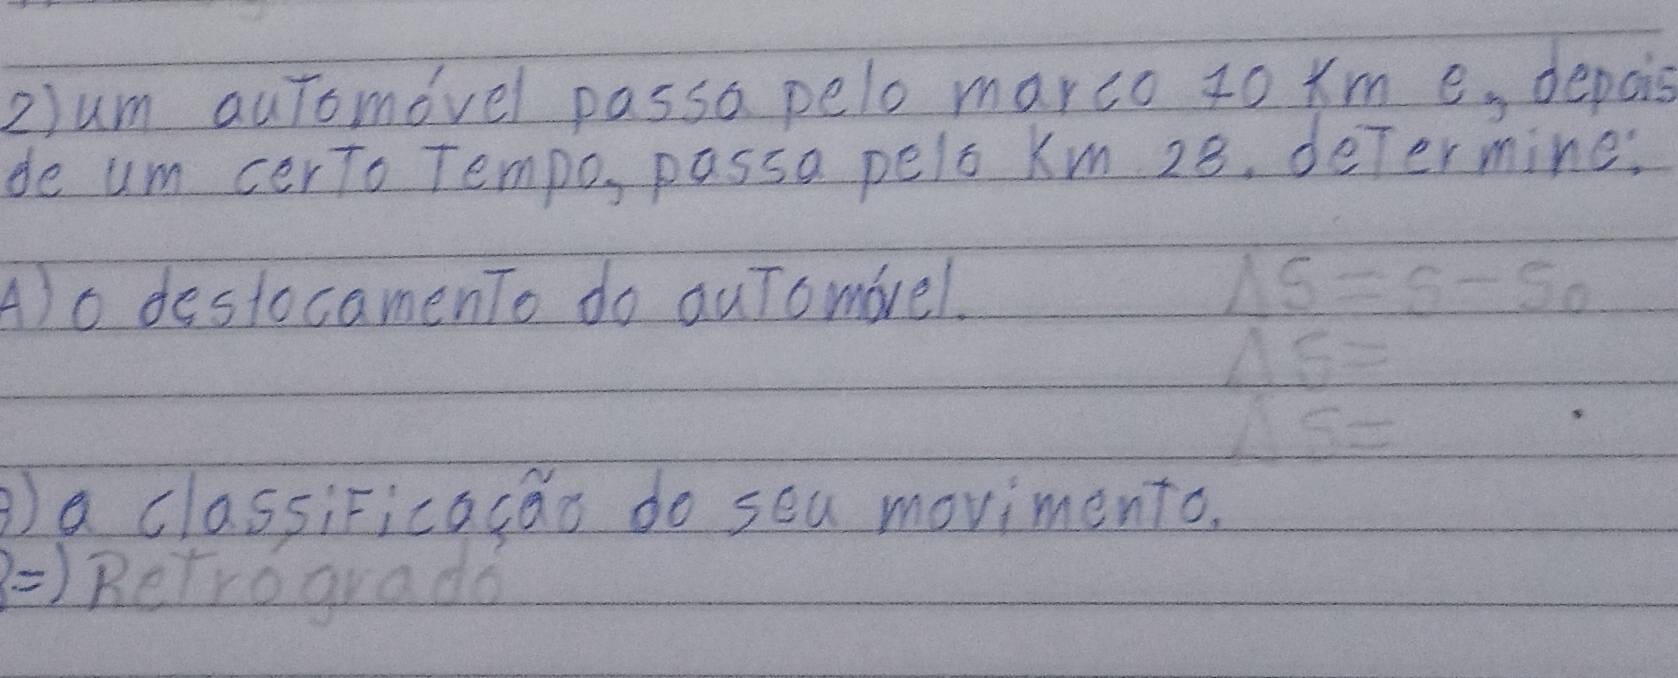 2) um automóvel passa pelo marco 10 Km e, depois
de um certo Tempo, passa pelo Km 28. determine:
A) o deslocamento do automóvel. ΔS = S - S₀
ΔS =
ΔS =
B) a classificação do seu movimento.
R=) Retrógrado